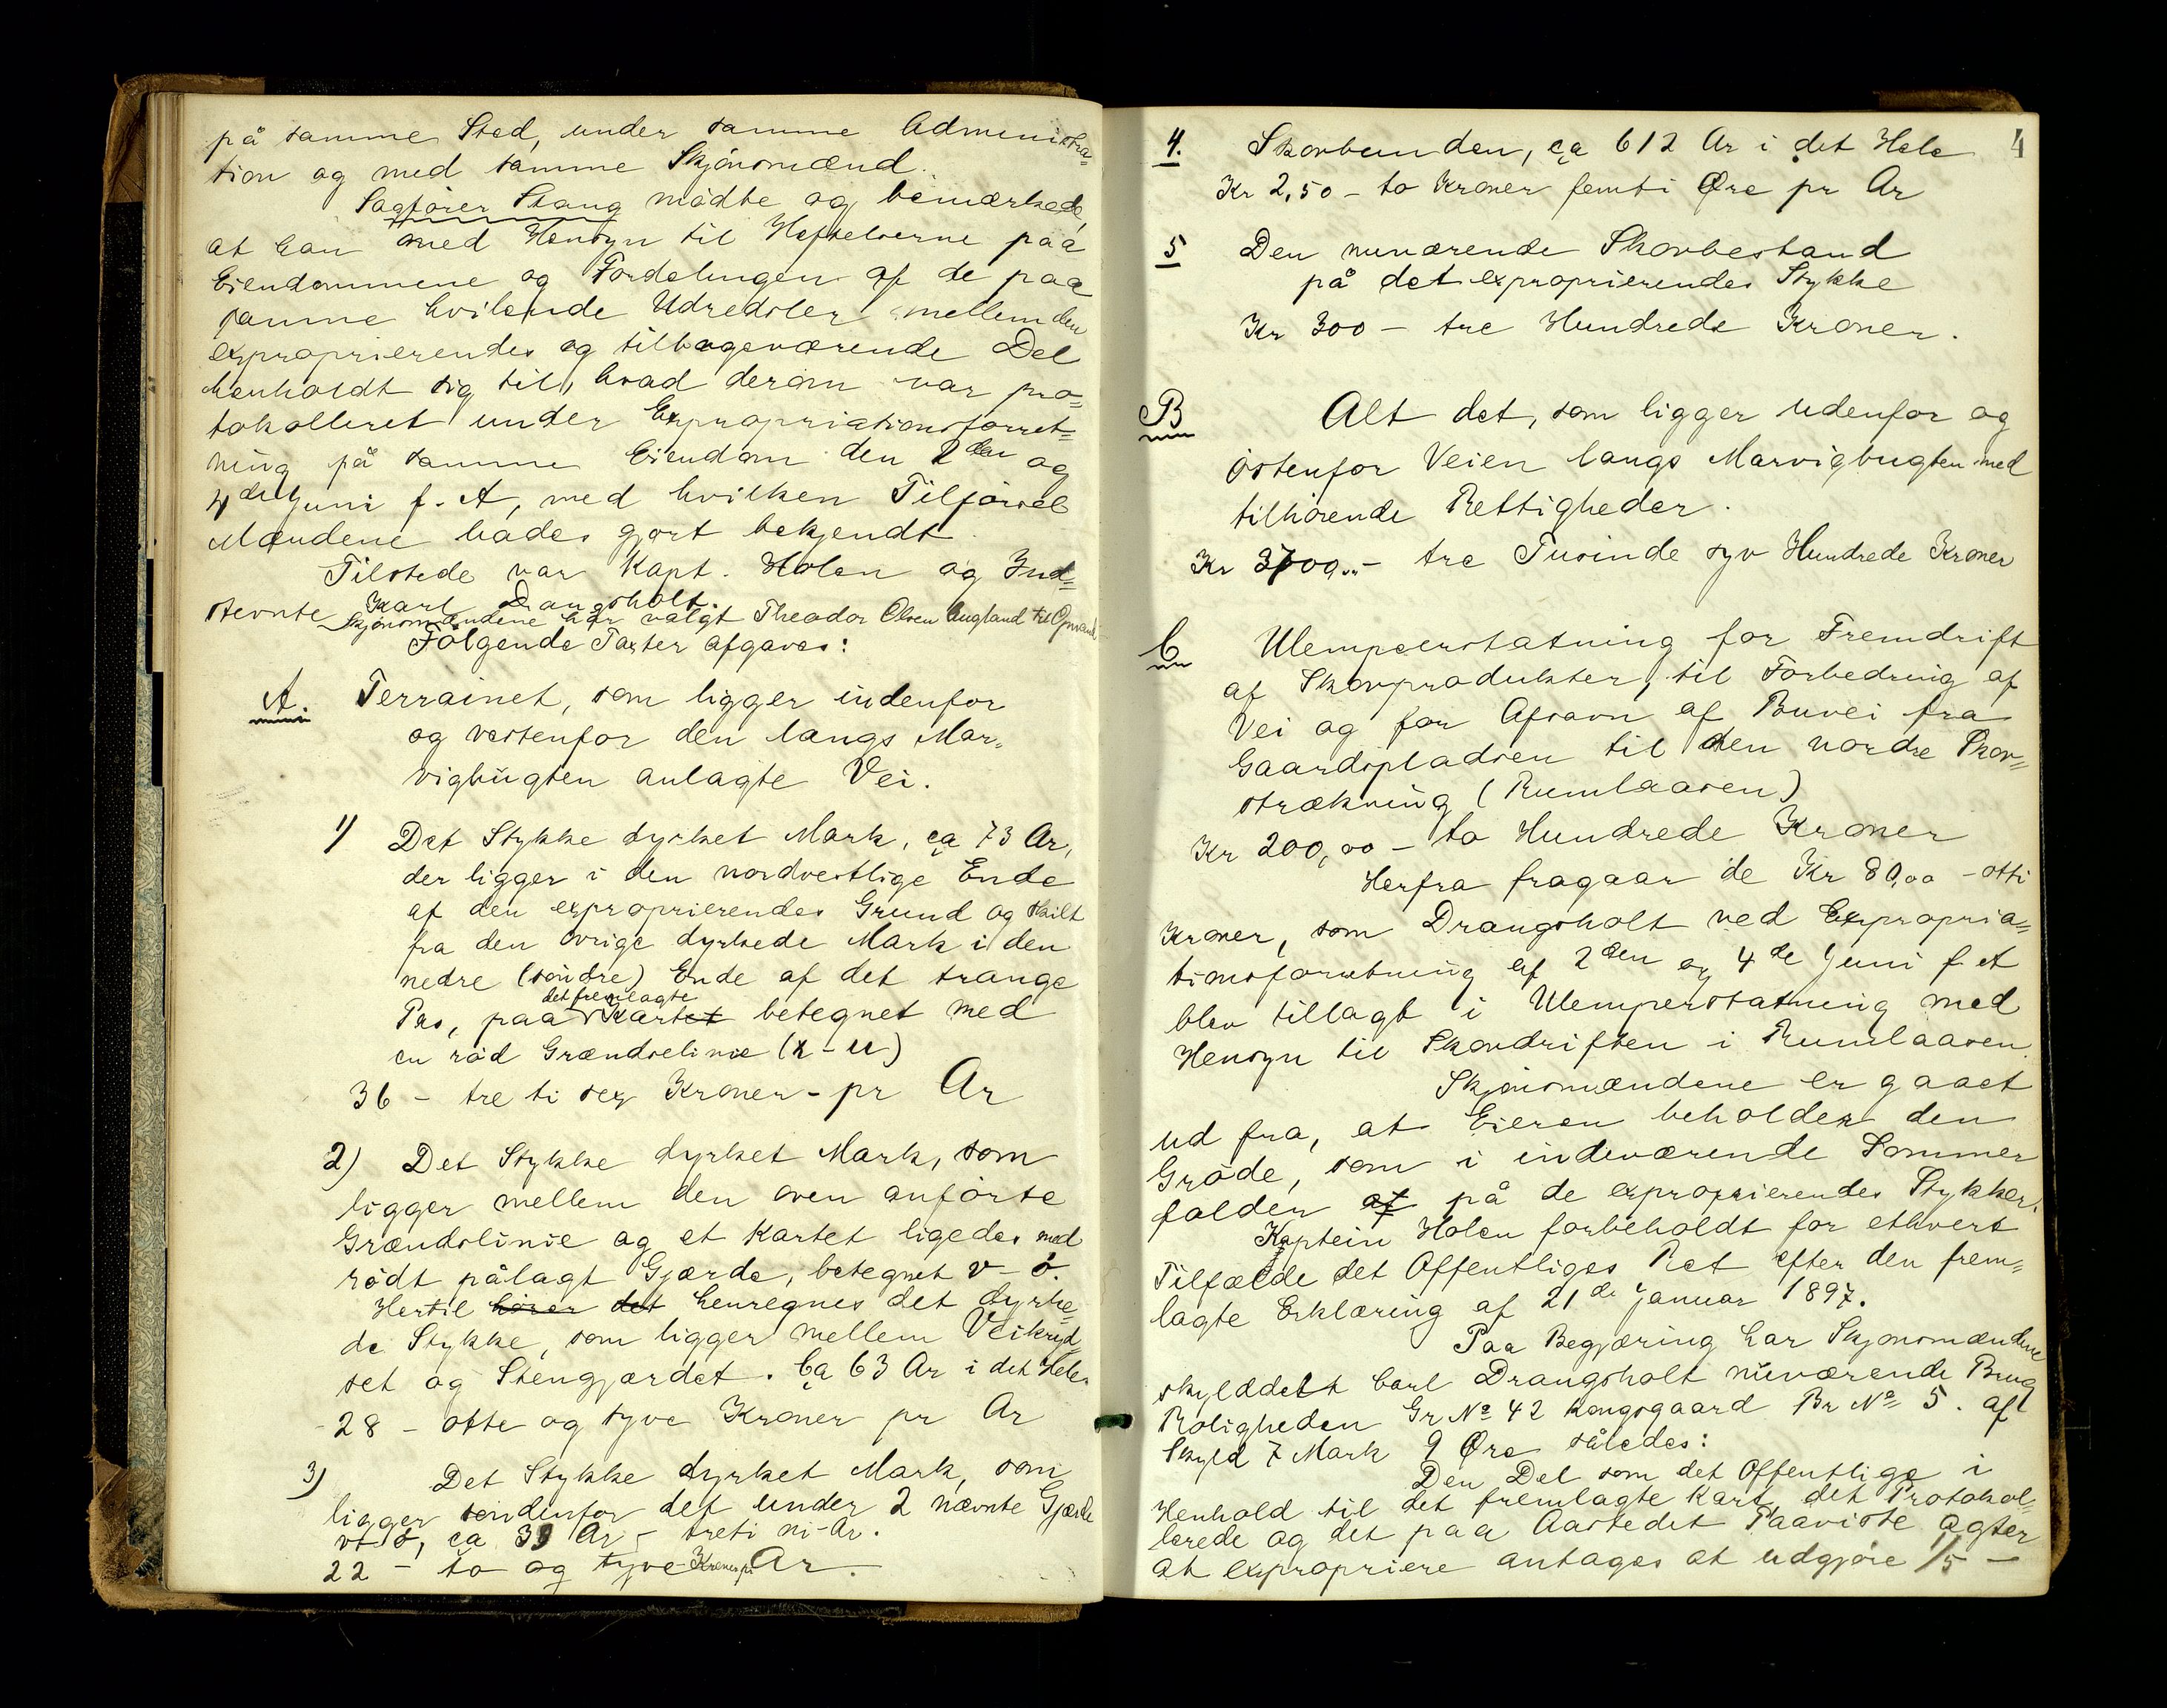 på samme Sted, under samme Administra=
tion og med samme Skjönsmænd.
Sagförer Stang mödte og bemærkede,
at han med Hensyn til Heftelserne paa
Eiendommene og Fordelingen af de paa
samme hvilende Udredsler mellem den
exproprierendes og tilbageværende Del
henholdt sig til, hvad derom var pro=
tokolleret under Expropriationsforret=
ning på samme Eiendom den 2den og
4de Juni f. A, med hvilken Tilförsel
Mændene hades gjort bekjendt.
Tilstede var Kapt. Holen og Ind=
stevnte Karl Drangsholt.
Skjönsmændene har valgt Theodor Olsen Augland til Opmand
Fölgende Taxter afgaves:
A. Terrainet, som ligger indenfor
og vestenfor den langs Mar=
vigbugten anlagte Vei.
1) Det Stykke dyrket Mark, ca 73 Ar,
der ligger i den nordvestlige Ende
af den exproprierendes Grund og skilt
fra den övrige dyrkede Mark i den
nedre (söndre) Ende af det trange
Pas, paa det fremlagte Kartet betegnet med
en röd Grændselinie (x-u)
36 - tre ti sex Kroner - pr Ar
2) Det Stykke dyrket Mark, som
ligger mellem den oven anförte
Grændslinie og et Kartet ligedes med
rödt pålagt Gjærde, betegnet v-ö.
Hertil hörer det henregnes det dyrke=
de Stykke, som ligger mellem Veikryd=
set og Stengjærdet. Ca 63 Ar i det Hele.
28 - otte og tyve Kroner pr Ar
3) Det Stykke dyrket Mark, som
ligger söndenfor det under 2 nævnte Gjærde
vt ö, ca 39 Ar - treti ni-Ar.
22 - to og tyve Kroner pr Ar.
4
4. Skovbunden, ca 612 Ar i det Hele
Kr 2,50 - to Kroner femti Øre pr Ar
5 Den nuværende Skovbestand
på det exproprierendes Stykke
Kr 300 - tre Hundrede Kroner.
B Alt det, som ligger udenfor og
östenfor Veien langs Marvigbugten med
tilhörende Rettigheder.
Kr 3700.- tre Tusinde syv Hundrede Kroner
C Ulempeerstatning for Fremdrift
af Skovprodukter, til Forbedring af
Vei og for Afsavn af Buvei fra
Gaardspladsen til den nordre Skov=
strækning (Rumlaasen)
Kr 200,00 - to Hundrede Kroner
Herfra fragaar de Kr 80,00 - otti
Kroner, som Drangsholt ved Expropria=
tionsforretning af 2den og 4de Juni f A
blev tillagt i Ulemperstatning med
Hensyn til Skovdriften i Rumlaasen.
Skjönsmændene er gaaet
ud fra, at Eieren beholder den
Gröde, som i indeværende Sommer
falder af på de exproprierendes Stykker.
Kaptein Holen forbeholdt for ethvert
Tilfælde det Offentliges Ret efter den frem=
lagte Erklæring af 21de Januar 1897.
Paa Begjæring har Skjönsmændene
skylddelt Carl Drangsholt nuværende Brug
Roligheden Gr No 42 Kongsgaard Br No 5. af
Skyld 7 Mark 9 Øre således:
Den Del som det Offentlige i
Henhold til det fremlagte Kart, det Protokol=
lerede og det paa Aastedet Paaviste agter
at expropriere antages at udgjöre 1/5 -